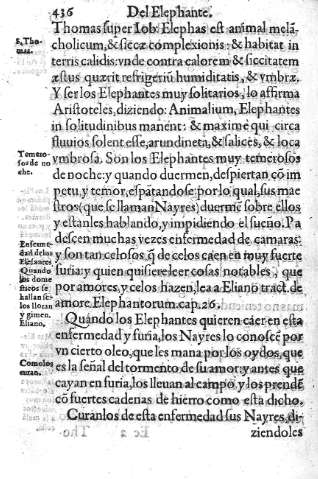 436 Del Elephante.
Thomas super Iob. Elephas est animal melã
S. Tho-
mas.
cholicum, & siccæ complexionis: & habitat in
terris calidis: vnde contra calorem & siccitatem
æstus quærit refrigeriũ humiditatis, & vmbræ.
Y ser los Elephantes muy solitarios, lo affirma
Aristoteles, diziendo: Animalium, Elephantes
in solitudinibus manent: & maximè qui circa
fluuios solent esse, arundineta, & salices, & loca
vmbrosa. Son los Elephantes muy temerosos
Temero-
sos de no
che.
de noche: y quando duermen, despiertan cõ im
petu, y temor, espãtandose por lo qual, sus mae
stros (que se llaman Nayres) duermẽ sobre ellos
y estanles hablando, y impidiendo el sueño. Pa
descen muchas vezes enfermedad de camaras:
y son tan celosos, q̃ de celos cáen en muy fuerte
furia: y quien quisiere leer cosas notables, que
por amores, y celos hazen, lea a Eliano tract. de
amore Elephantorum. cap. 26.
Enfeme-
dad de los
Elefantes,
Quando
los dome
sticos se
hallan so-
los lloran
y gimen.
Eliano,
Quando los Elephantes quieren cáer en esta
enfermedad y furia, los Nayres lo conoscẽ por
vn cierto oleo, que les mana por los oydos, que
es la señal del tormento de su amor: y antes que
cayan en furia, los lleuan al campo, y los prendẽ
cõ fuertes cadenas de hierro como esta dicho.
Como los
curan.
Curanlos de esta enfermedad sus Nayres, di-
ziendoles